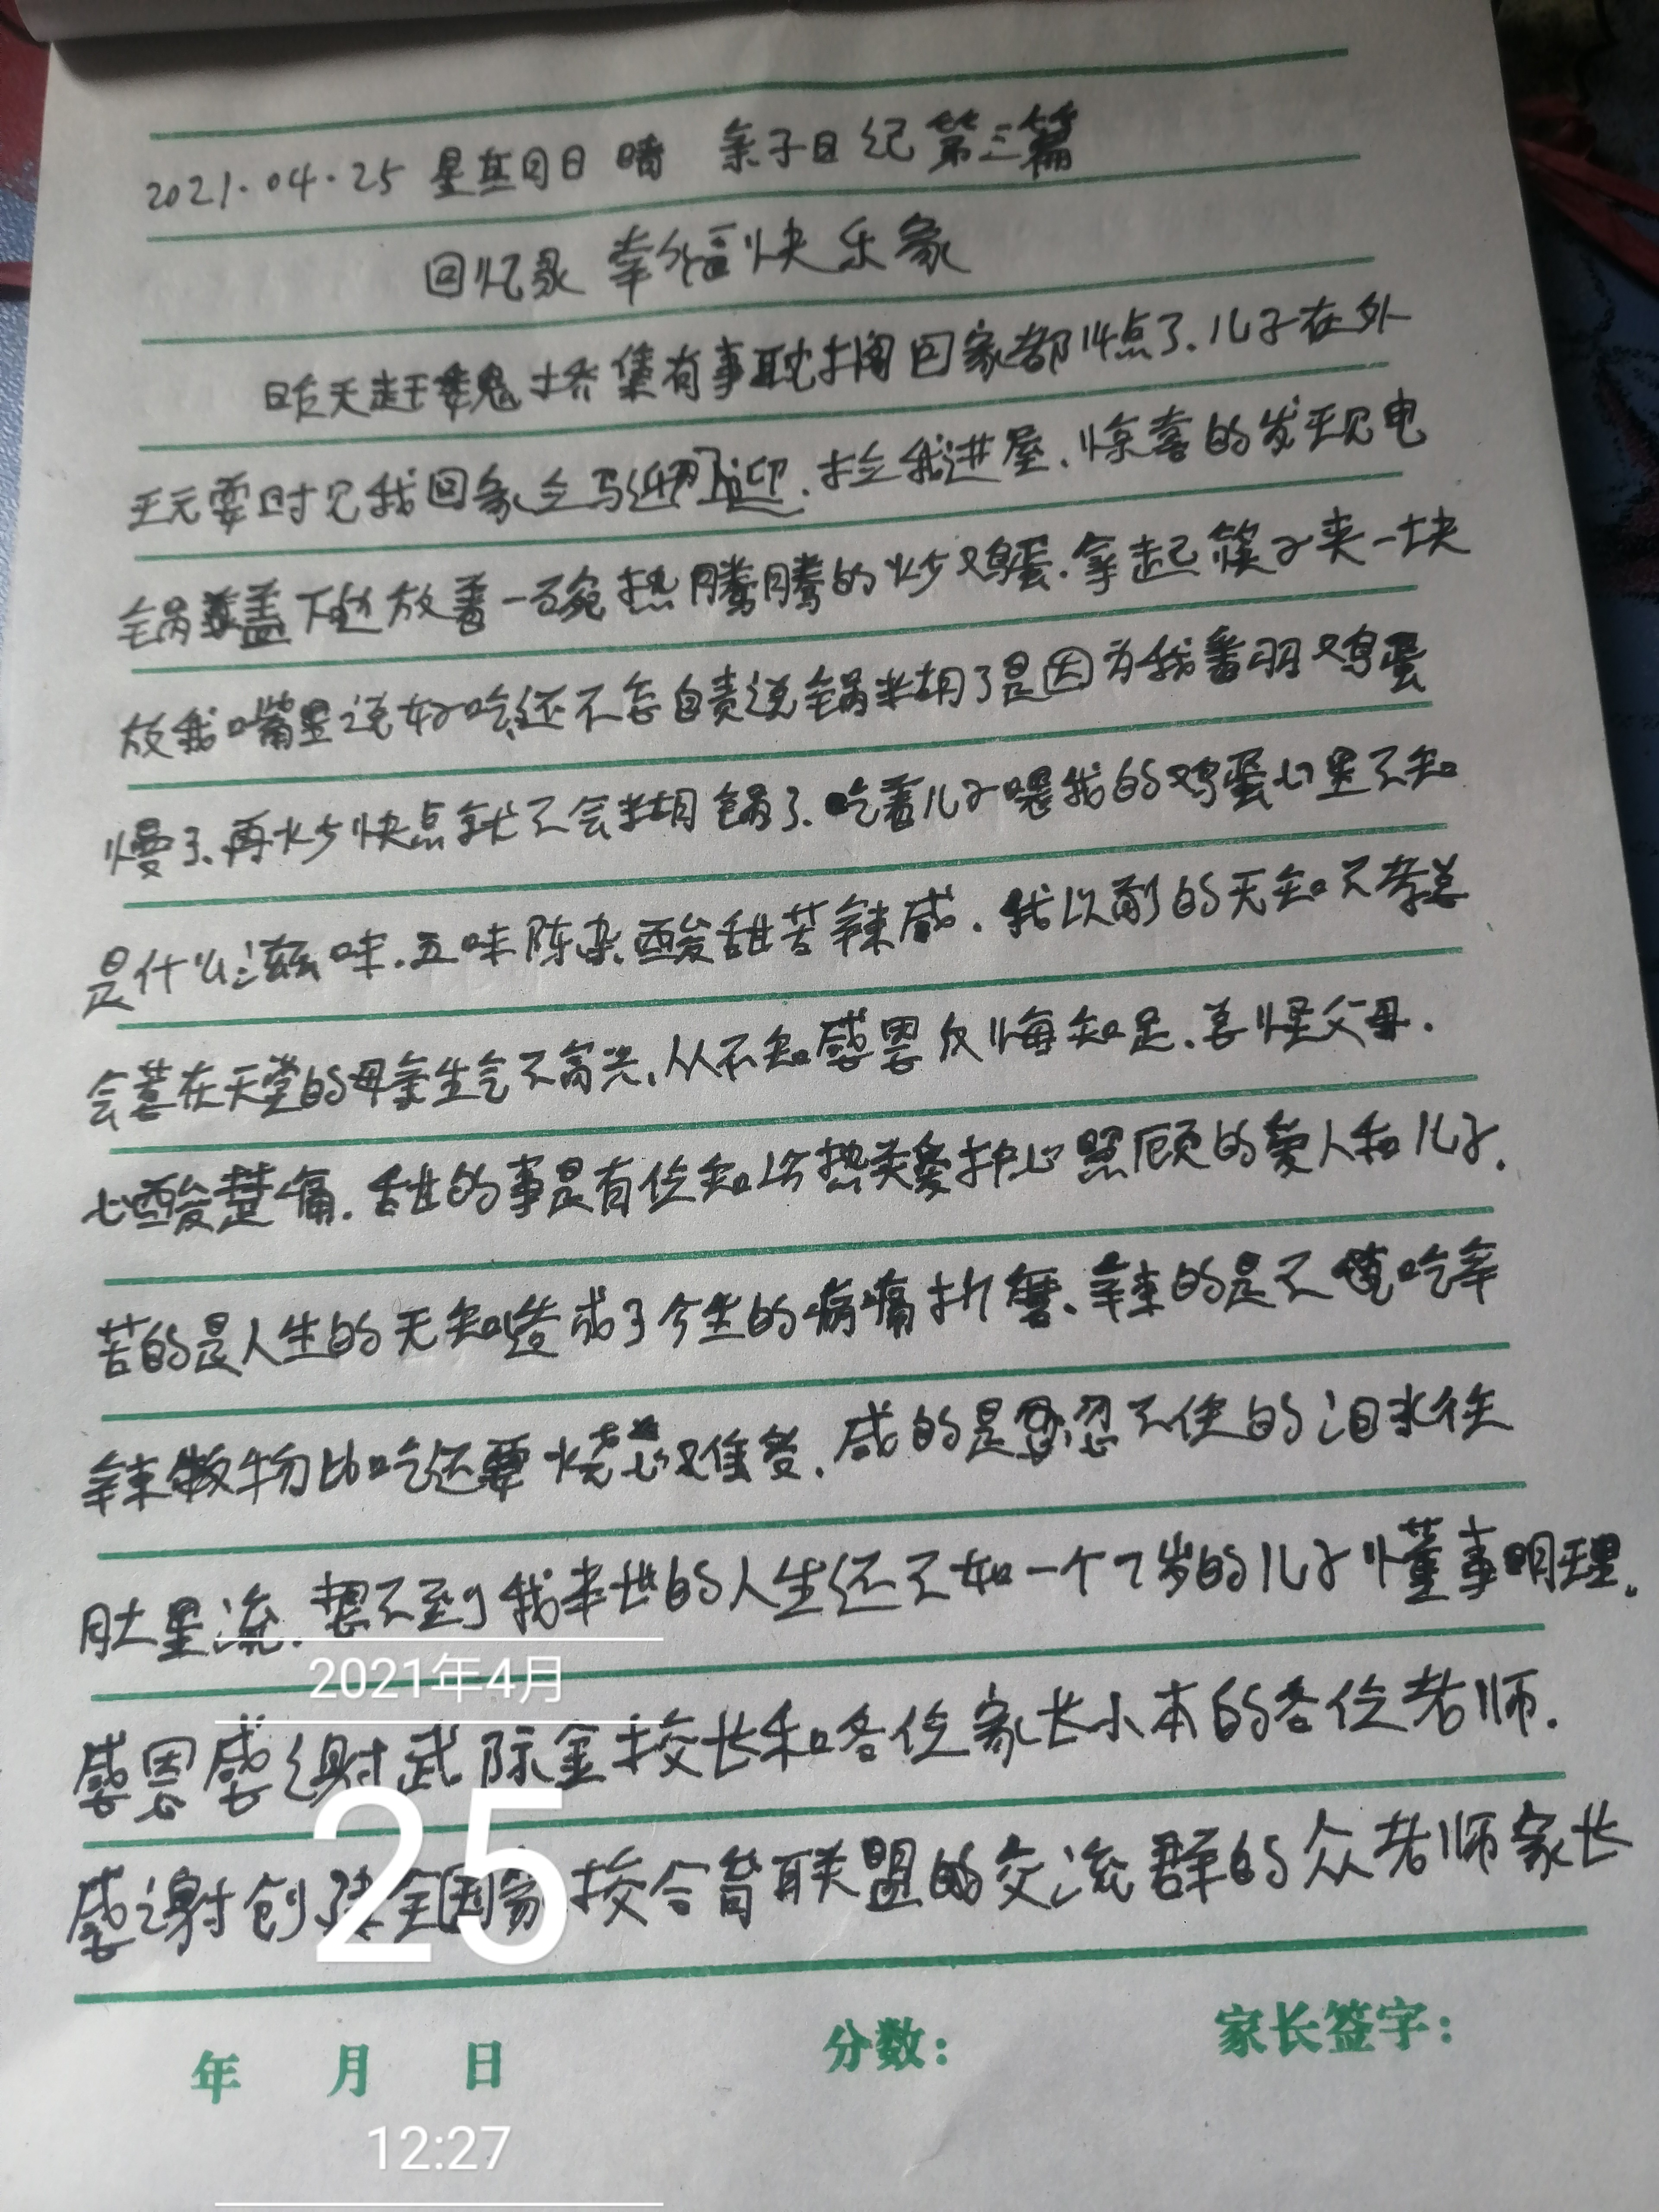 2021.04.25 星基日日 晴 亲子日纪 第三篇
回忆录 幸福快乐家
昨天赶魏桥集有事耽搁回家都14点了.儿子在外
玩耍时见我回家立马迎.拉我进屋.惊喜的发现电
锅盖下边放着一碗热腾腾的炒鸡蛋.拿起筷子夹一块
放我嘴里说好吃,还不忘自责说锅糊了是因为我番羽鸡蛋
慢了.再炒快点就不会糊锅了.吃着儿子喂我的鸡蛋心里不知
是什么滋味.五味陈杂.酸甜苦辣咸.我以前的无知不孝总
会惹在天堂的母亲生气不高兴.从不知感恩 悔知足.怪父母.
心酸楚痛.甜的事是有位知热爱护心照顾的爱人和儿子.
苦的是人生的无知造成了今生的病痛折磨.辣的是不吃辛
辣做物比吃还要烧心难受.咸的是忍不住的泪水往
肚里流.想不到我半世的人生还不如一个7岁的儿子懂事明理.
感恩感谢武际金校长和各位家长小本的各位老师.
感谢创建全国家校合育联盟的交流群的众老师家长
2021年4月
25
年 月 日 分数: 家长签字:
12:27